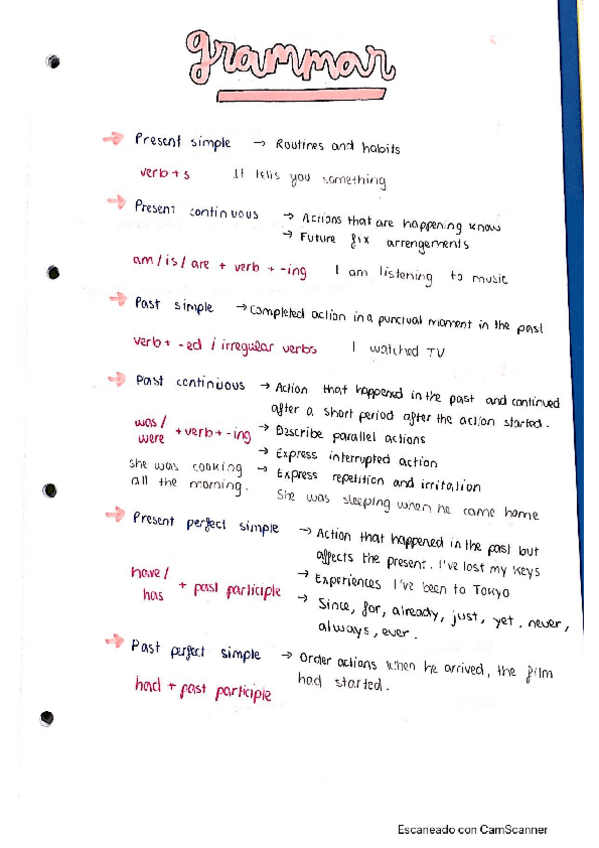 grammar
→ Present simple → Routines and habits
verb + s It tells you something
→ Present continuous → Actions that are happening know
→ Future fix arrengements
am / is / are + verb + -ing I am listening to music
→ Past simple → Completed action in a puncival moment in the past
verb + -ed / irregular verbs I watched TV
→ Past continuous → Action that happened in the past and continued
after a short period after the action started.
was / were + verb + -ing → Describe parallel actions
→ Express interrupted action
She was cooking all the morning. → Express repetition and irritation
She was sleeping when he came home
→ Present perfect simple → Action that happened in the past but
affects the present. I've lost my keys
have / has + past participle → Experiences I've been to Tokyo
→ Since, for, already, just, yet. never,
always, ever.
→ Past perfect simple → Order actions when he arrived, the film
had started.
had + past participle
Escaneado con CamScanner